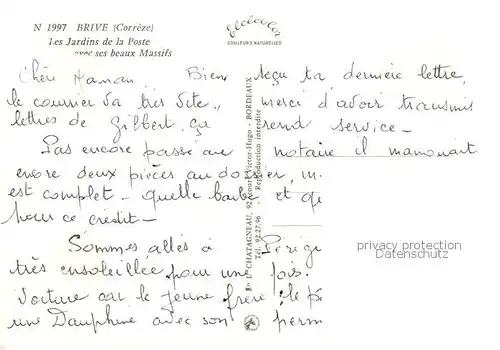 N 1997 BRIVE (Corrèze)
Les Jardins de la Poste
avec ses beaux Massifs
élcécolor
COULEURS NATURELLES
Chère Maman. Bien reçu ta dernière lettre,
le courrier va très vite., merci d'avoir transmis
lettres de Gilbert. ça rend service -
Pas encore passé au notaire il manquait
encore deux pièces au dossier, m
est complet - quelle barbe et q
pour ce crédit -
Sommes allés à Périg
très ensoleillée pour une fois.
Voiture car le jeune frère le pè
une Dauphine avec son perm
CHATAGNEAU, 92, cours Victor-Hugo - BORDEAUX
Tél. 92.27.96 Reproduction interdite
privacy protection
Datenschutz